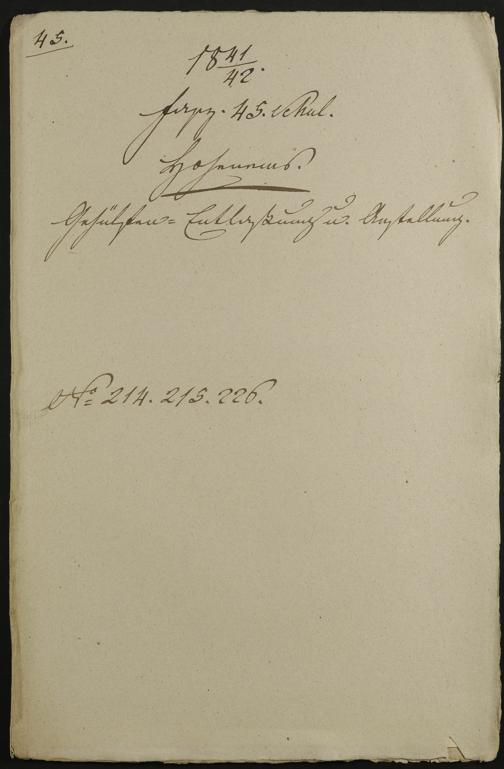 45.
18 41/42.
Fasz. 45. Schul.
Hohenems.
Gehülfen= Entlaßung u. Anstellung.
No= 214. 215. 226.